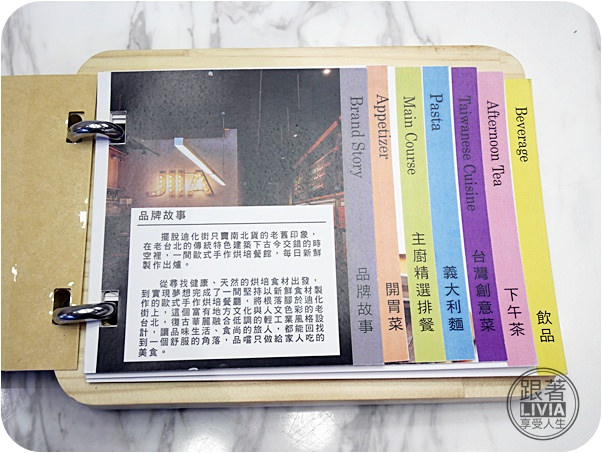 品牌故事
擺脫迪化街只賣南北貨的老舊印象,
在老台北的傳統特色建築下古今交錯的時
空裡,一間歐式手作烘培餐館,每日新鮮
製作出爐。
從尋找健康,天然的烘培食材出發,
到實現夢想完成了一間堅持以新鮮食材製
作的歐式手作烘培餐廳,將根落腳於迪化
街上,這個富有地方文化與人文色彩的老
台北,復古華麗融合低調輕工業風格的設
計,讓品味生活食尚的旅人,都能家人找
到一個舒服的角落,品嚐只做給回吃的
美食。
Brand Story
品牌故事
Appetizer
開胃菜
Main Course
主廚精選排餐
Pasta
義大利麵
Taiwanese Cuisine
台灣創意菜
Afternoon Tea
下午茶
Beverage
飲品
跟著
LIVIA
享受人生